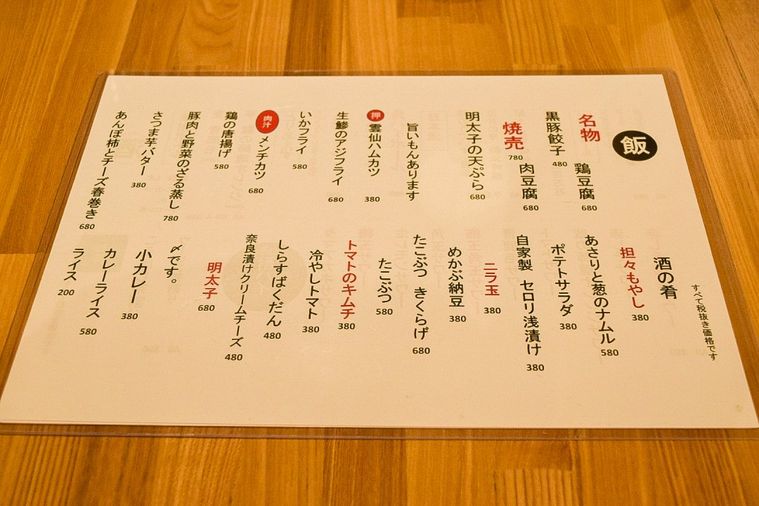 飯
名物
鶏豆腐 680
黒豚餃子 480
肉豆腐 680
焼売 780
明太子の天ぷら 680
旨いもんあります
押 雲仙ハムカツ 380
生鯵のアジフライ 680
いかフライ 580
肉汁 メンチカツ 680
鶏の唐揚げ 580
豚肉と野菜のざる蒸し 780
さつま芋バター 380
あんぽ柿とチーズ春巻き 680
すべて税抜き価格です
酒の肴
担々もやし 380
あさりと葱のナムル 580
ポテトサラダ 380
自家製 セロリ浅漬け 380
ニラ玉 380
めかぶ納豆 380
たこぶつ きくらげ 680
たこぶつ 580
トマトのキムチ 380
冷やしトマト 380
しらすばくだん 480
奈良漬けクリームチーズ 480
明太子 680
〆です。
小カレー 380
カレーライス 580
ライス 200